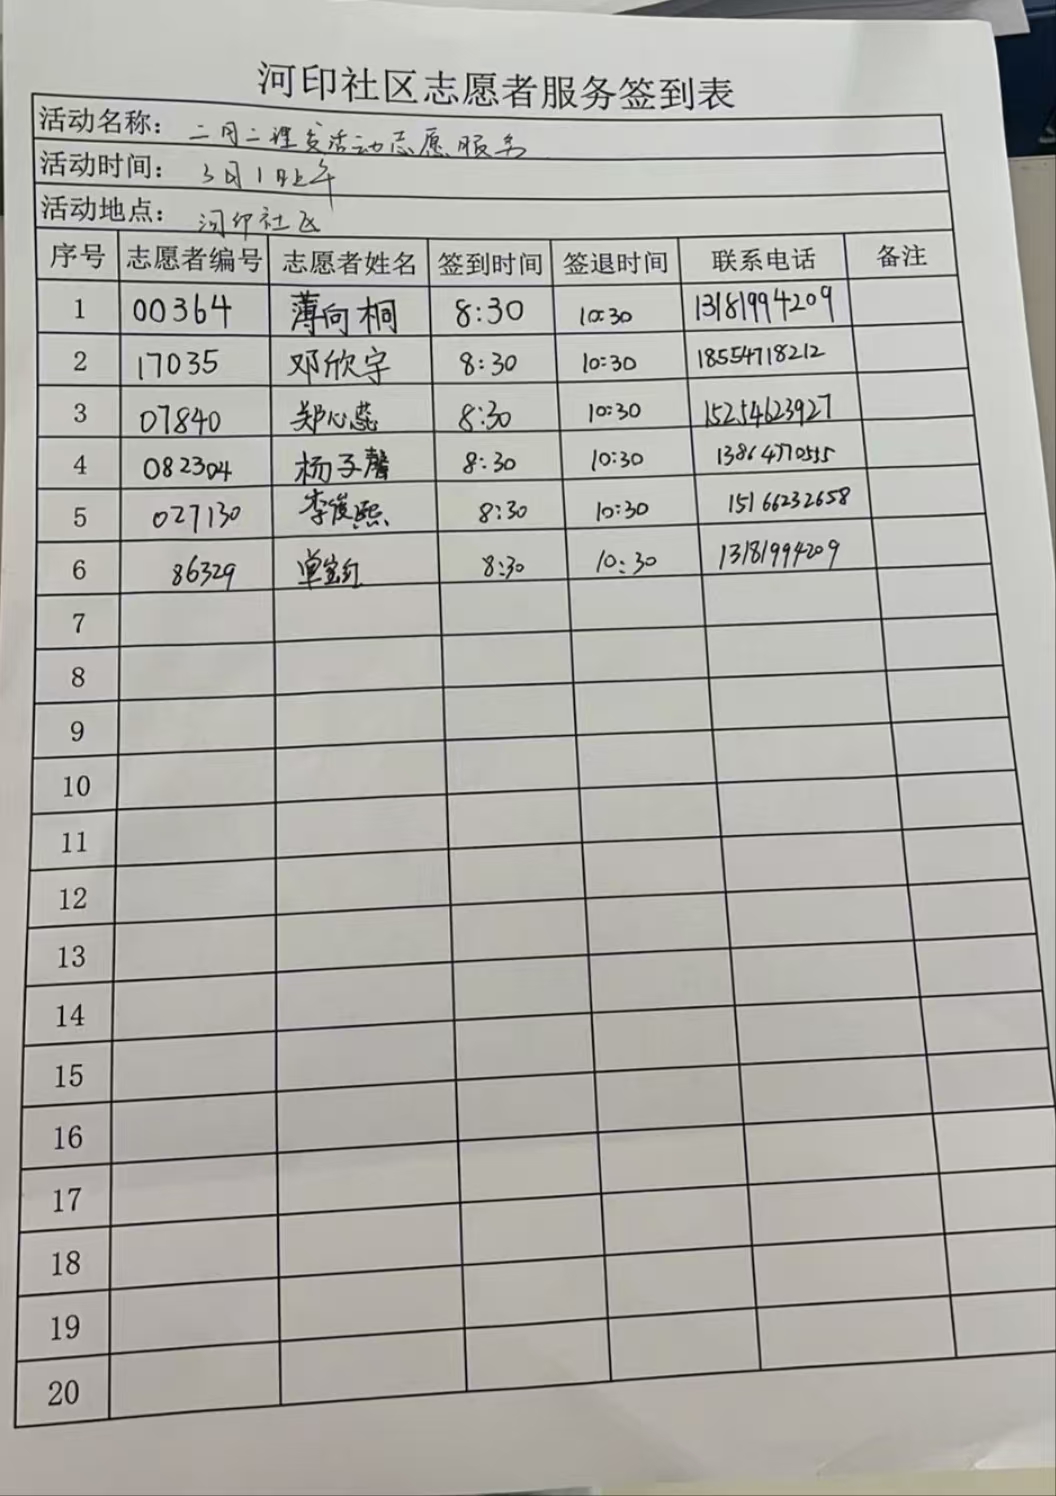 河印社区志愿者服务签到表
活动名称：二月二理发活动志愿服务
活动时间：3月1日上午
活动地点：河印社区
序号 志愿者编号 志愿者姓名 签到时间 签退时间 联系电话 备注
1 00364 薄向桐 8:30 10:30 13181994209
2 17035 邓欣宇 8:30 10:30 18554718212
3 07840 郑心蕊 8:30 10:30 15254623927
4 082304 杨子馨 8:30 10:30 13864770555
5 027130 李俊熙 8:30 10:30 15166232658
6 86329 单宝红 8:30 10:30 13181994209
7
8
9
10
11
12
13
14
15
16
17
18
19
20